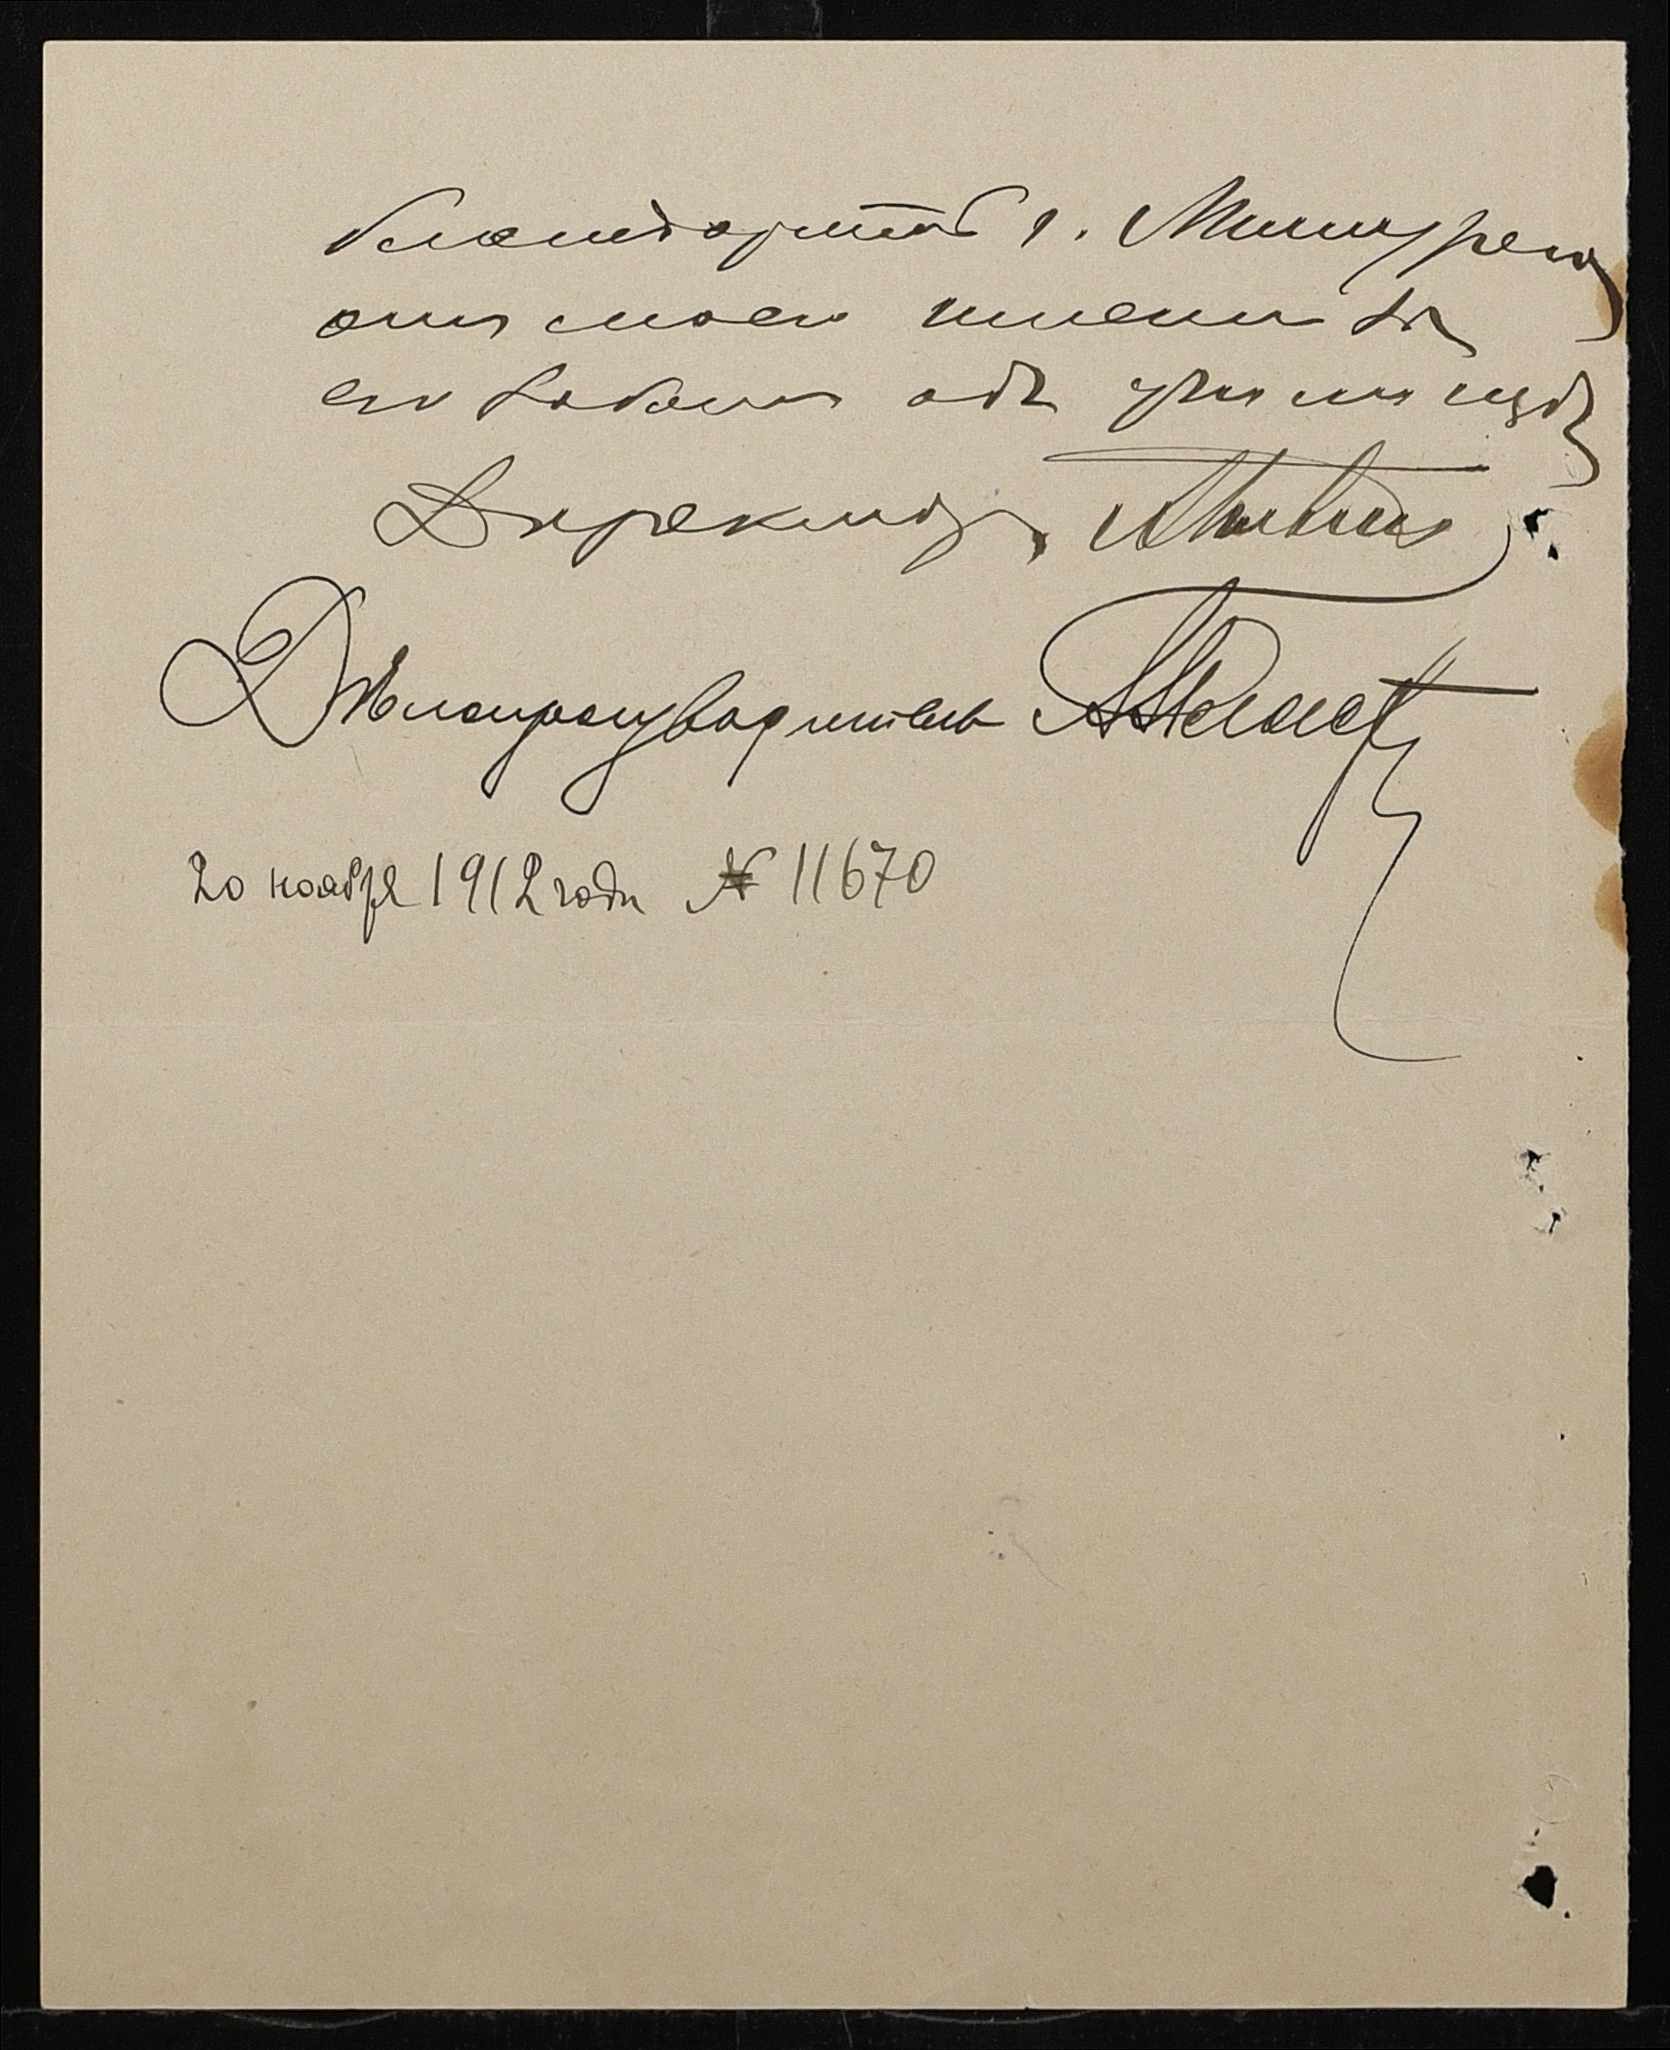 благодарность г. Мишуреню
отъ моего имени за
его заботы объ училищѣ
Директоръ
Дѣлопроизводитель
20 ноября 1912 года № 11670